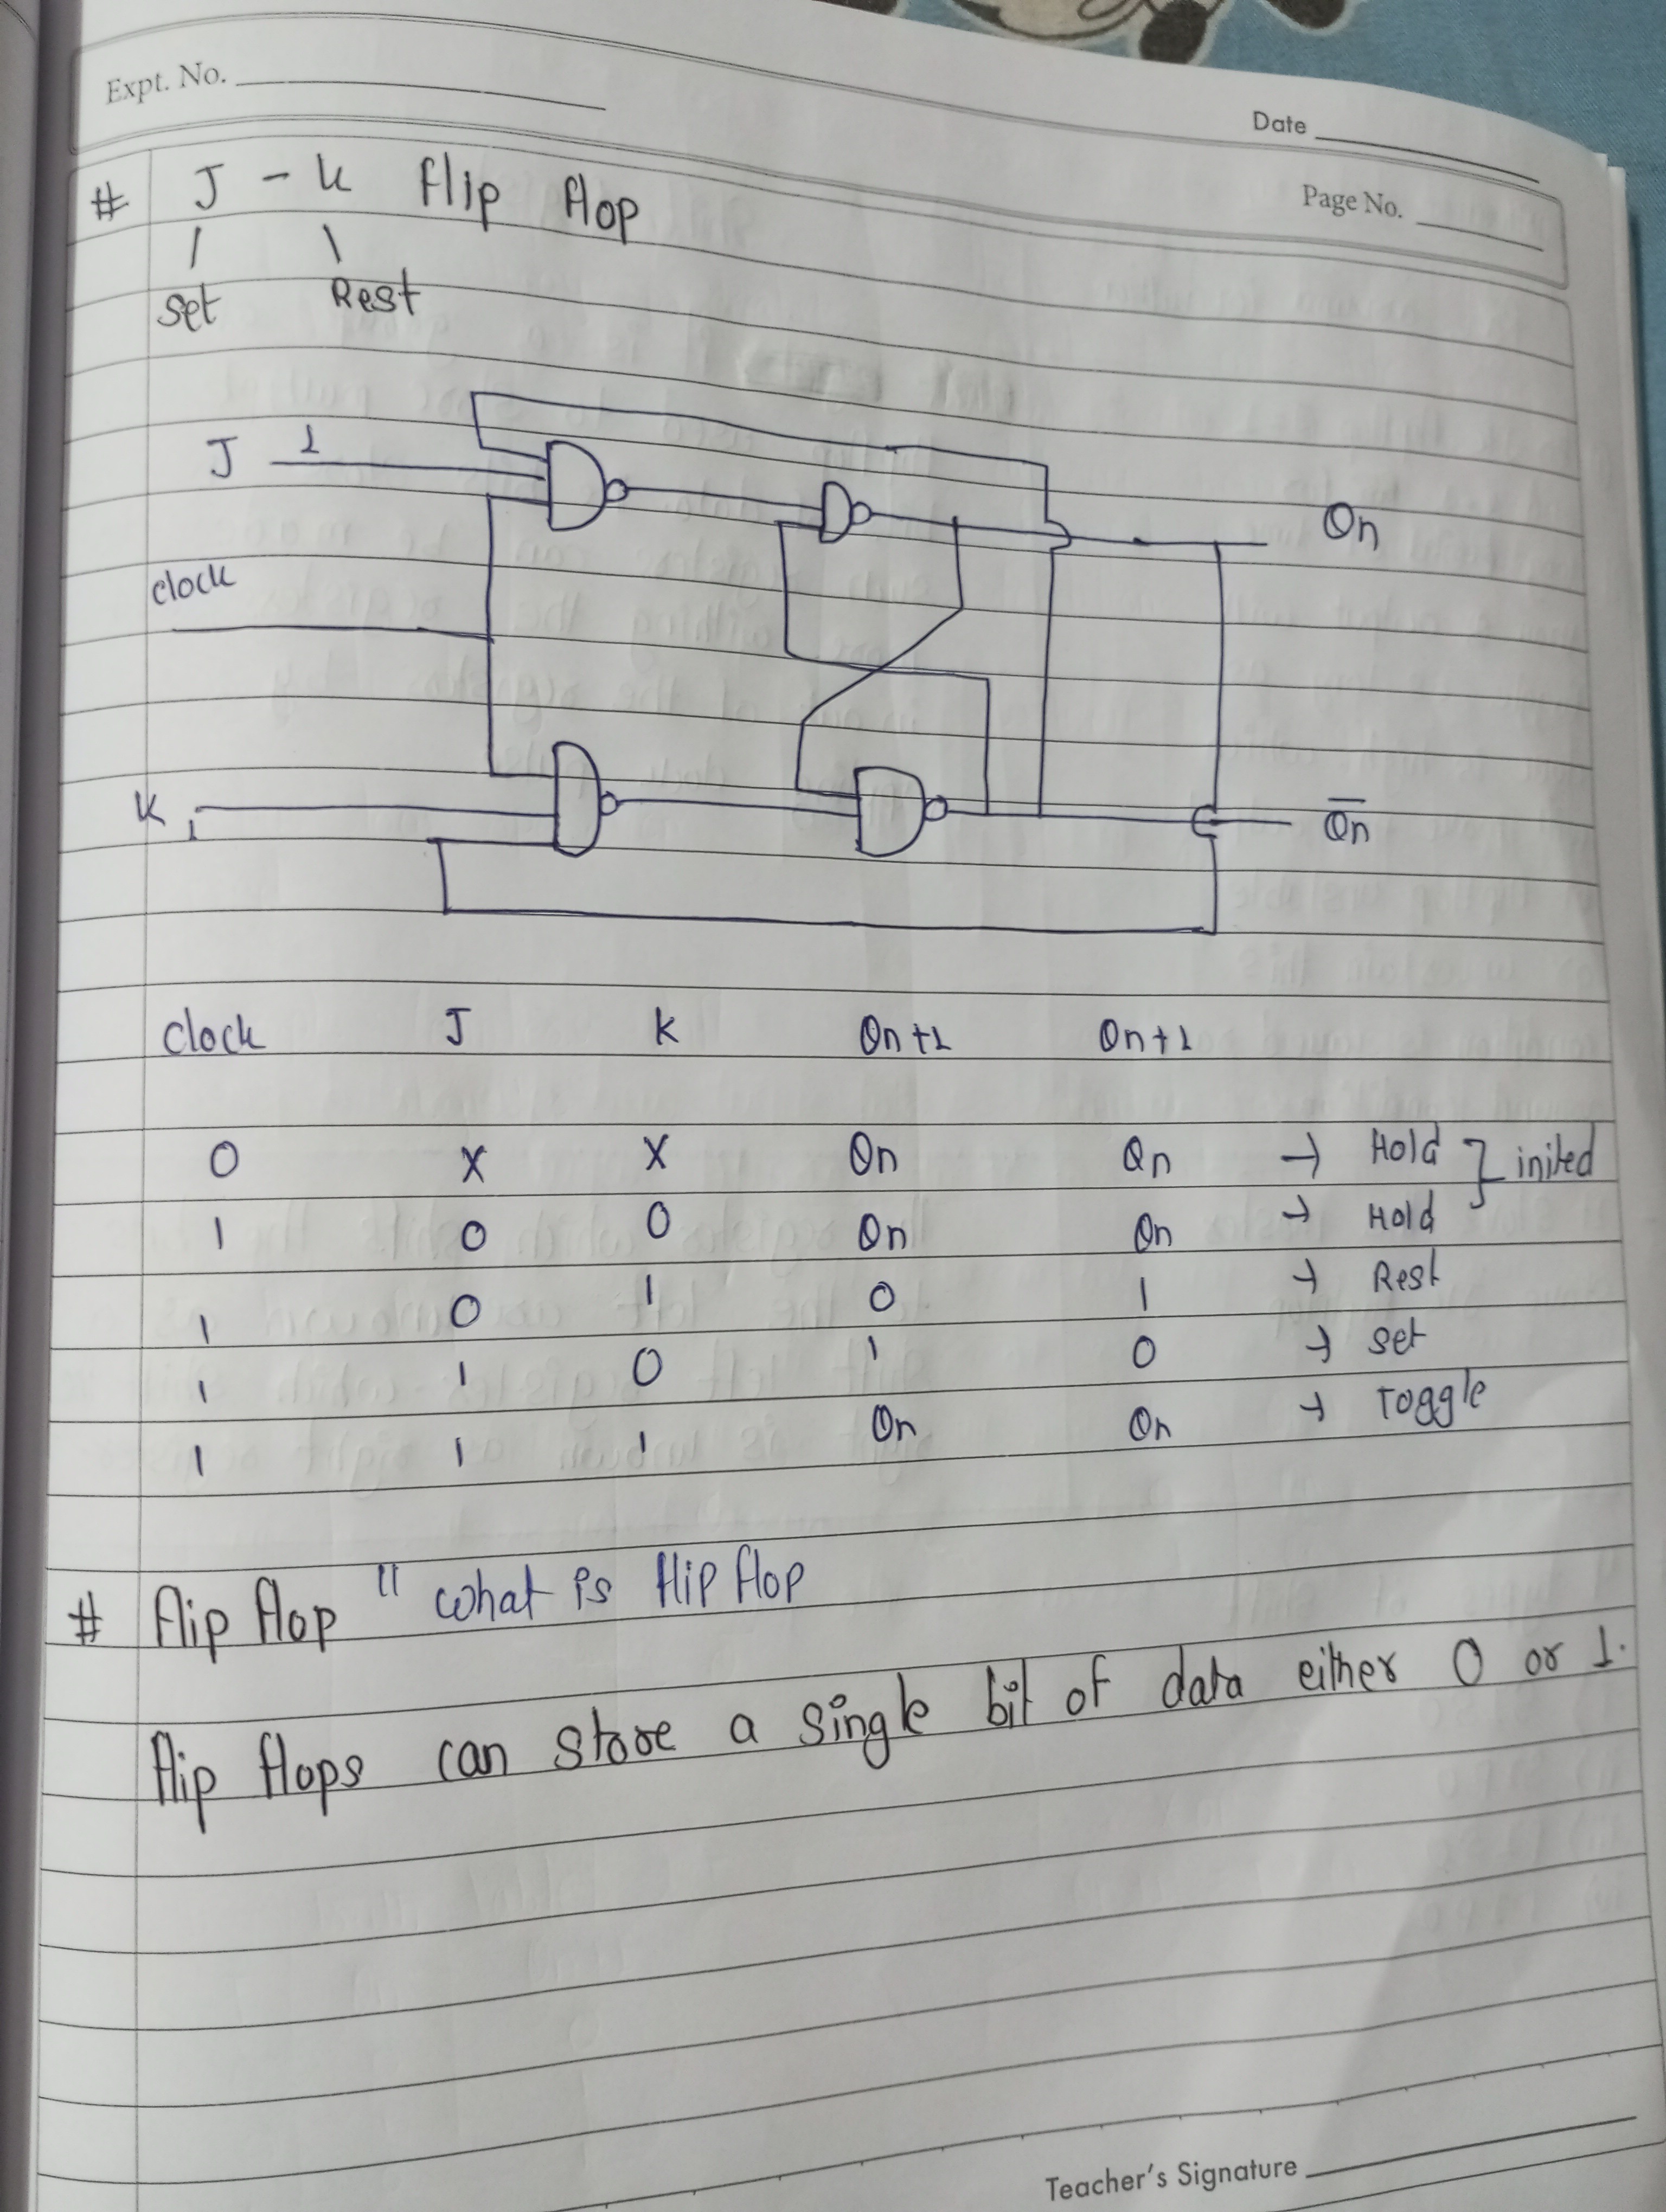 Expt. No.
Date
Page No.
# J - K flip flop
Set Rest
J 1
Qn
clock
K 1
Q̅n̅
Clock J K Qn+1 Qn+1
0 X X Qn Qn → Hold } inited
1 0 0 Qn Qn → Hold
1 0 1 0 1 → Rest
1 1 0 1 0 → Set
1 1 1 Qn Qn → Toggle
# flip flop " what is flip flop
flip flops can store a single bit of data either 0 or 1.
Teacher's Signature